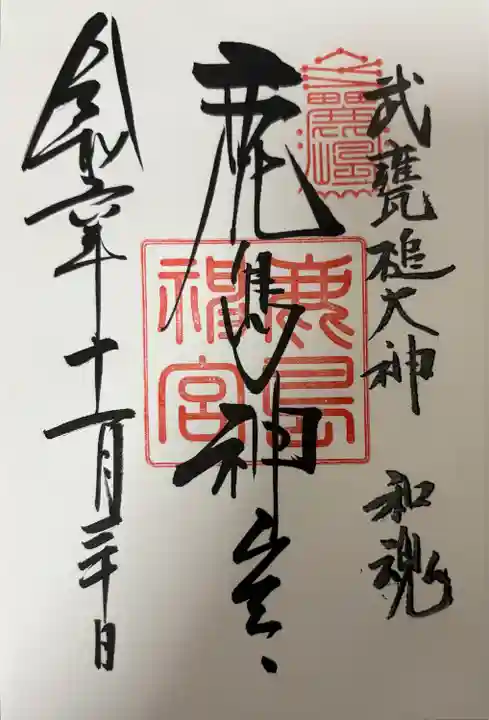 武甕槌大神 和魂
鹿島神宮
鹿島神宮
令和六年十一月三十日